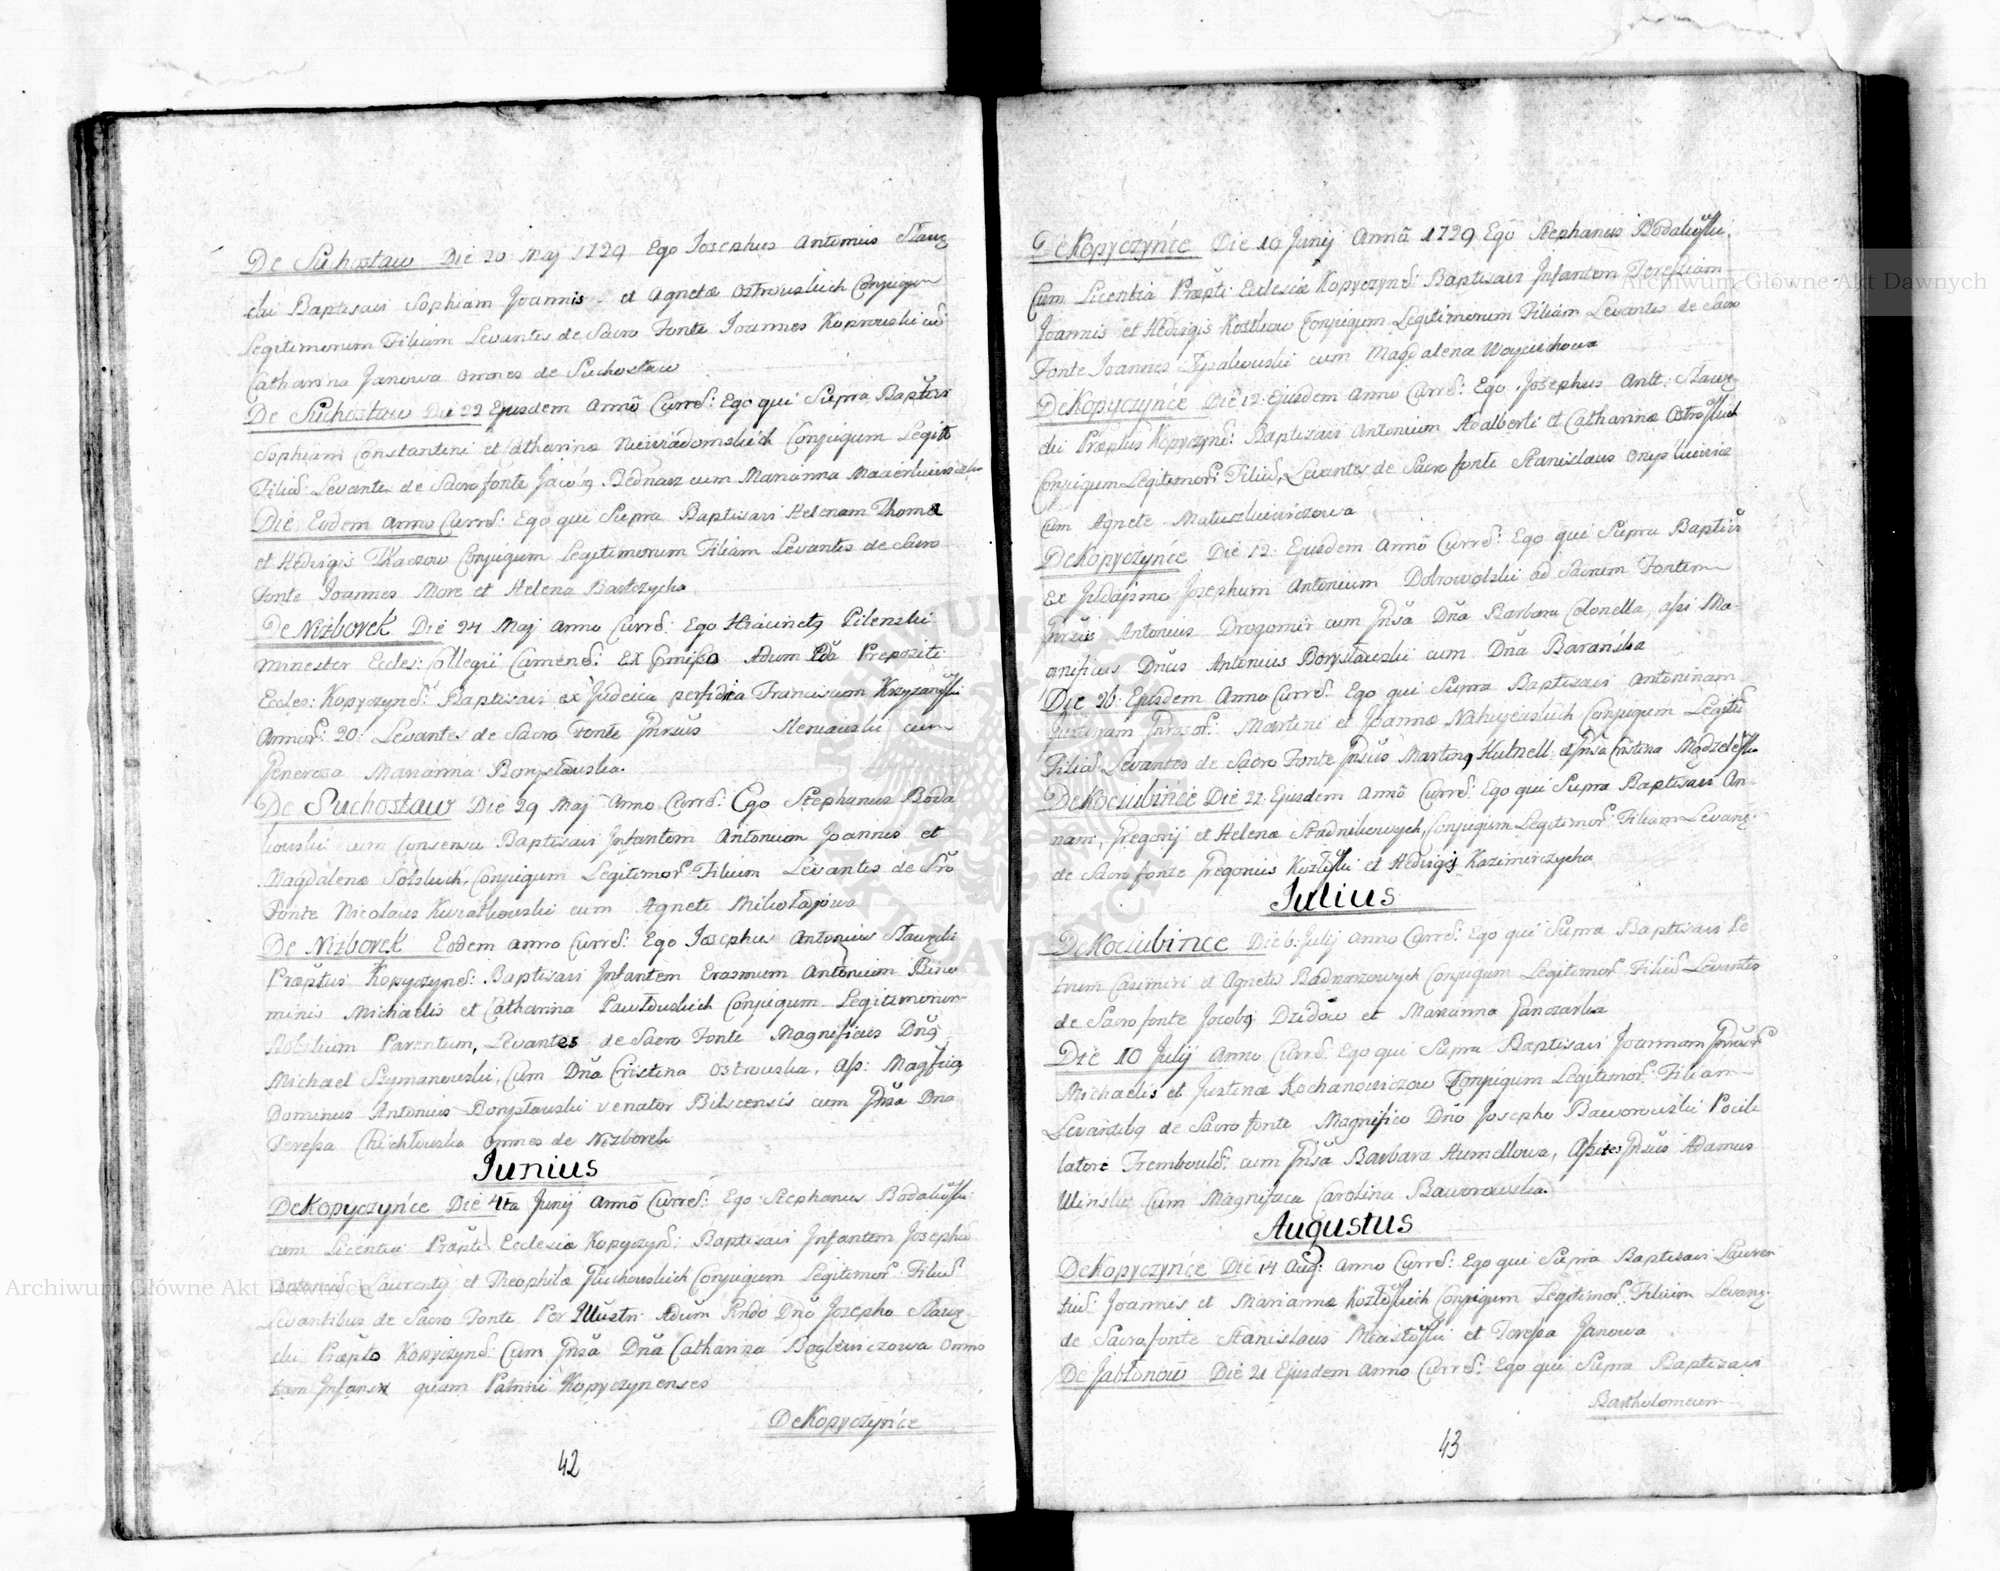 De Suchostaw Die 20 Maj 1729 Ego Josephus Antonius Slawę
cki Baptisavi Sophiam Joannis et Agnetæ Ostrowskich Conjugum
Legitimorum Filiam Levantes de Sacro Fonte Joannes Koprowski cum
Catharina Janowa omnes de Suchostaw
De Suchostaw Die 22 Ejusdem Anno Curreñ: Ego qui Supra Baptisavi
Sophiam Constantini et Catharinæ Niewiadomskich Conjugum Legit
Filiam Levantes de Sacro fonte Bednarz cum Marianna
Die Eodem Anno Curreñ: Ego qui Supra Baptisavi Helenam Thomæ
et Hedvigis Tkaczow Conjugum Legitimorum Filiam Levantes de Sacro
Fonte Joannes More et Helena Bartczycha
De Niżborek Die 24 Maj Anno Curreñ: Ego Hiacinctus Pilenski
Minester Eccles: Collegii Cameneñ: Ex Comisso Adum Rdi Prepositi
Eccles: Kopyczyneñ: Baptisavi ex Judaica perfidia Franciscum
Annor: 20: Levantes de Sacro Fonte cum
Generosa Marianna Borysławska.
De Suchostaw Die 29 Maj Anno Curreñ: Ego Stephanus Boda
kowski cum Consensu Baptisavi Infantem Antonium Joannis et
Magdalenæ Solskich, Conjugum Legitimor: Filium Levantes de Sro
Fonte Nicolaus Kwiatkowski cum Agnete Mikołajowa
De Niżborek Eodem Anno Curreñ: Ego Josephus Antonius Sławęcki
Præptus Kopyczyneñ: Baptisavi Infantem Erasmum Antonium Bino
minis Michaelis et Catharina Pawłowskich Conjugum Legitimorum
Nobilium Parentum, Levantes de Sacro Fonte Magnificus Dnus
Michael Szymanowski, Cum Dna Cristina Ostrowska, Ass: Magficus
Dominus Antonius Borysławski Venator Bilscensis cum Gnsa Dna
Teressa Chichłowska Omnes de Niżborek
Junius
De Kopyczyńce Die 4ta Junij Anno Curreñ: Ego Stephanus Bodakowski
cum Licentia Præpti Ecclesiæ Kopyczyneñ: Baptisavi Infantem Josephum
Laurentij et Theophilæ Głuchowskich Conjugum Legitimor: Filium
Levantibus de Sacro Fonte Per Illustri Adum Rndo Dno Josepho Sławę
cki Præpto Kopyczyneñ: Cum Gnsa Dna Catharina Boglewiczowa Omnes
tam Infans quam Patrini Kopyczynenses
De Kopyczyńce
42
De Kopyczyńce Die 10 Junij Anno 1729 Ego Stephanus Bodakowski
Cum Licentia Præpti Ecclesiæ Kopyczyneñ: Baptisavi Infantem Teressiam
Joannis et Hedvigis Kostkow Conjugum Legitimorum Filiam Levantes de Sacro
Fonte Joannes cum Magdalena Woyciechowa
De Kopyczyńce Die 12 Ejusdem Anno Curreñ: Ego Josephus Antt: Sławę
cki Præptus Kopyczyneñ: Baptisavi Antonium Adalberti et Catharinæ
Conjugum Legitimor: Filium, Levantes de Sacro fonte Stanislaus Onyszkiewicz
cum Agnete Matuszkiewiczowa
De Kopyczyńce Die 12: Ejusdem Anno Curreñ: Ego qui Supra Baptisavi
Ex Judajsmo Josephum Antonium Dobrowolski ad Sacrum Fontem
Gnrsus Antonius Drogomir cum Gnsa Dna Barbara Colonella, assi Ma-
gnificus Dnus Antonius Borysławski cum Dna Barańska
Die 26: Ejusdem Anno Curreñ: Ego qui Supra Baptisavi Antoninam
Justinam Gnrsor: Martini et Joannæ Conjugum Legitim
Filiam Levantes de Sacro Fonte Gnsus Martinus Kutnell
De Kociubińce Die 22: Ejusdem Anno Curreñ: Ego qui Supra Baptisavi An-
nam, Gregorij et Helenæ Stadnikowych, Conjugum Legitimor: Filiam Levanę:
de Sacro fonte Gregorius et Hedvigis Kazimierczycha
Julius
De Kociubińce Die 6: Julij Anno Curreñ: Ego qui Supra Baptisavi Pe
trum Casimiri et Agnetis Bednarzowych Conjugum Legitimor: Filium Levantes
de Sacro fonte Jacobus Dzidow et Marianna Ganczarka
Die 10 Julij Anno Curreñ: Ego qui Supra Baptisavi Joannam Gnrosor:
Michaelis et Justinæ Kochanowiczow Conjugum Legitimor: Filiam
Levantibus de Sacro fonte Magnifico Dno Josepho Baworowski Pocil
latore Tremboulen: cum Gnsa Barbara Humellowa, Assites Gnsus Adamus
Winski Cum Magnifica Carolina Baworowska.
Augustus
De Kopyczyńce Die 14 Aug: Anno Curreñ: Ego qui Supra Baptisavi Lauren
tium: Joannis et Mariannæ Conjugum Legitimor: Filium Levanę:
de Sacro fonte Stanislaus et Teressa Janowa
De Jabłonow Die 21 Ejusdem Anno Curreñ: Ego qui Supra Baptisavi
Bartholomeum
43
Archiwum Główne Akt Dawnych
Archiwum Główne Akt Dawnych